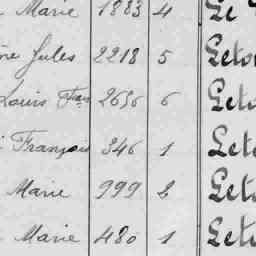 Marie 1883 4 Le
Jules 2218 5 Leto
Louis Fran 2636 6 Leto
François 346 1 Lete
Marie 999 2 Lete
Marie 480 1 Lete